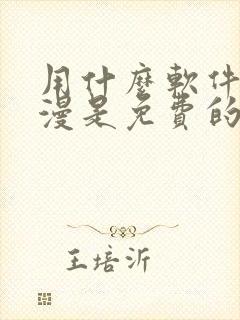 用什麼軟件
漫是免費的
王培沂